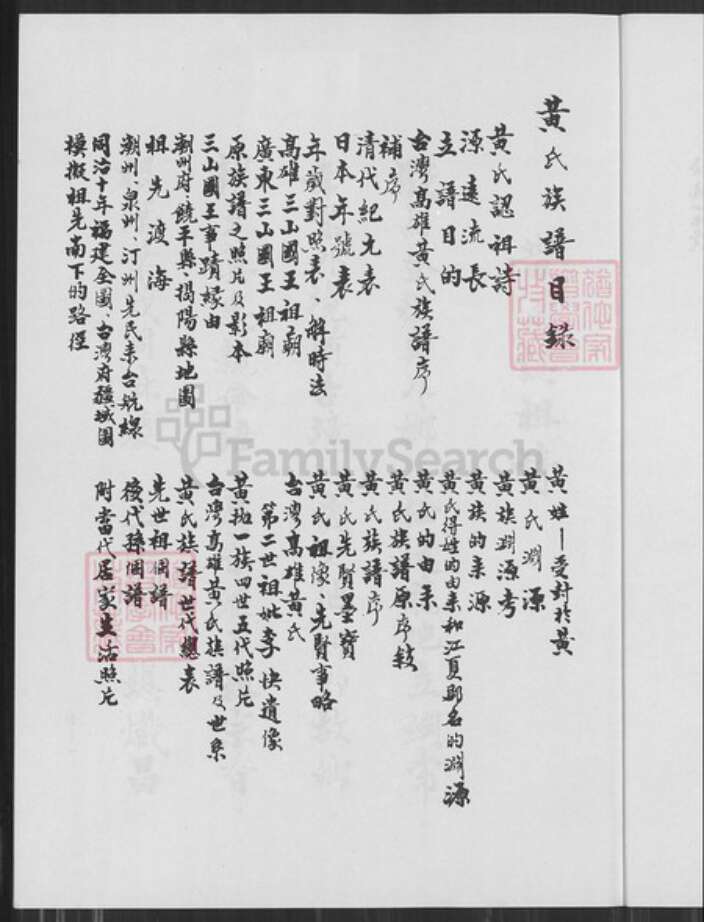 黃氏族譜目錄
黃氏認祖詩
源遠流長
立譜目的
台灣高雄黃氏族譜序
補序
清代紀元表
日本年號表
年歲對照表、解時法
高雄三山國王祖廟
廣東三山國王祖廟
原族譜之照片及影本
三山國王事蹟緣由
潮州府、饒平縣、揭陽縣地圖
祖先渡海
潮州、泉州、汀州先民來台航線
同治十年福建全圖、台灣府疆域圖
模擬祖先南下的路徑
黃姓—受封於黃
黃氏淵源
黃族淵源考
黃族的來源
黃氏得姓的由來和江夏郡名的淵源
黃氏的由來
黃氏族譜原序敍
黃氏族譜序
黃氏先賢墨寶
黃氏祖像、先賢事略
台灣高雄黃氏
第二世祖妣李快遺像
黃拗一族四世五代照片
台灣高雄黃氏族譜及世系
黃氏族譜世代總表
先世祖圖譜
後代孫圖譜
附當代居家生活照片
FamilySearch